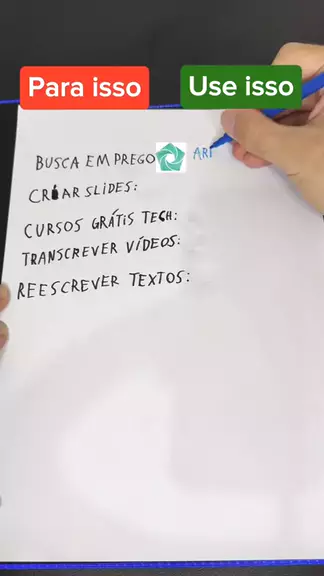 Para isso
Use isso
BUSCA EMPREGO ARI
CRIAR SLIDES:
CURSOS GRÁTIS TECH:
TRANSCREVER VÍDEOS:
REESCREVER TEXTOS: